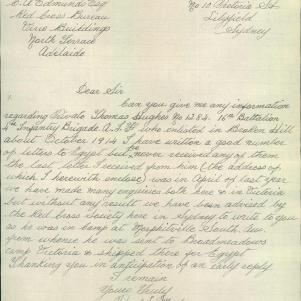 C. A. Edmunds Esq
Red Cross Bureau
Verco Buildings
North Terrace
Adelaide
No 10 Victoria St
Lilyfield
Sydney
Dear Sir
Can you give me any information
regarding Private Thomas Hughes No 1284 16th Battalion
4th Infantry Brigade A.I.F who enlisted in Broken Hill
about October 1914 I have written a good number
of letters to Egypt but he never received any of them
the last letter I received from him (the address of
which I herewith enclose) was in April of last year
we have made many enquiries both here & in Victoria
but without any result we have been advised by
the Red Cross Society here in Sydney to write to you
as he was in camp at Morphitville South Aus.
from whence he was sent to Broadmeadows
camp Victoria & shipped there for Egypt
Thanking you in anticipation of an early reply
I remain
Yours Truly